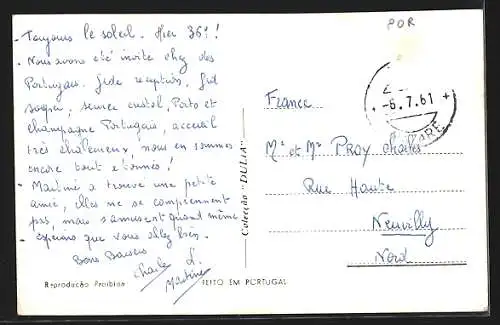 POR
- Toujours le soleil. Hier 36°!
- Nous avons été invité chez des
Portugais. Gde reception. Gd
souper, service cristal, Porto et
champagne Portugais, accueil
très chaleureux, nous en sommes
encore tout etonnés!
- Martine a trouvé une petite
amie, elles ne se comprennent
pas, mais s'amusent quand même
- espérons que vous allez bien.
Bons Baisers
Charle
Martine
Reprodução Proibida
FEITO EM PORTUGAL
Colecção "DULIA"
-6.7.61
France
Mr et Mme PROY Charles
Rue Haute
Neuvilly
Nord